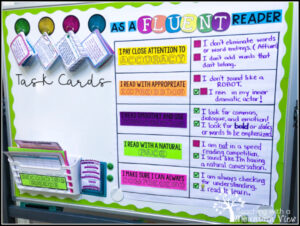 AS A FLUENT READER
Task Cards
I PAY CLOSE ATTENTION TO
ACCURACY
I don't eliminate words
or word endings. (Affixes)
I don't add words that
don't belong.
I READ WITH APPROPRIATE
I don't sound like a
ROBOT.
I am in my inner
dramatic actor!
I look for commas,
dialogue, and emotion!
I look for bold or italics
or words to be emphasized.
I READ WITH A NATURAL
PACE
I am not in a speed
reading competition.
I sound like I'm having
a normal conversation.
I MAKE SURE I CAN ALWAYS
I am always checking
for understanding.
I read to learn.
with a
Mountain View